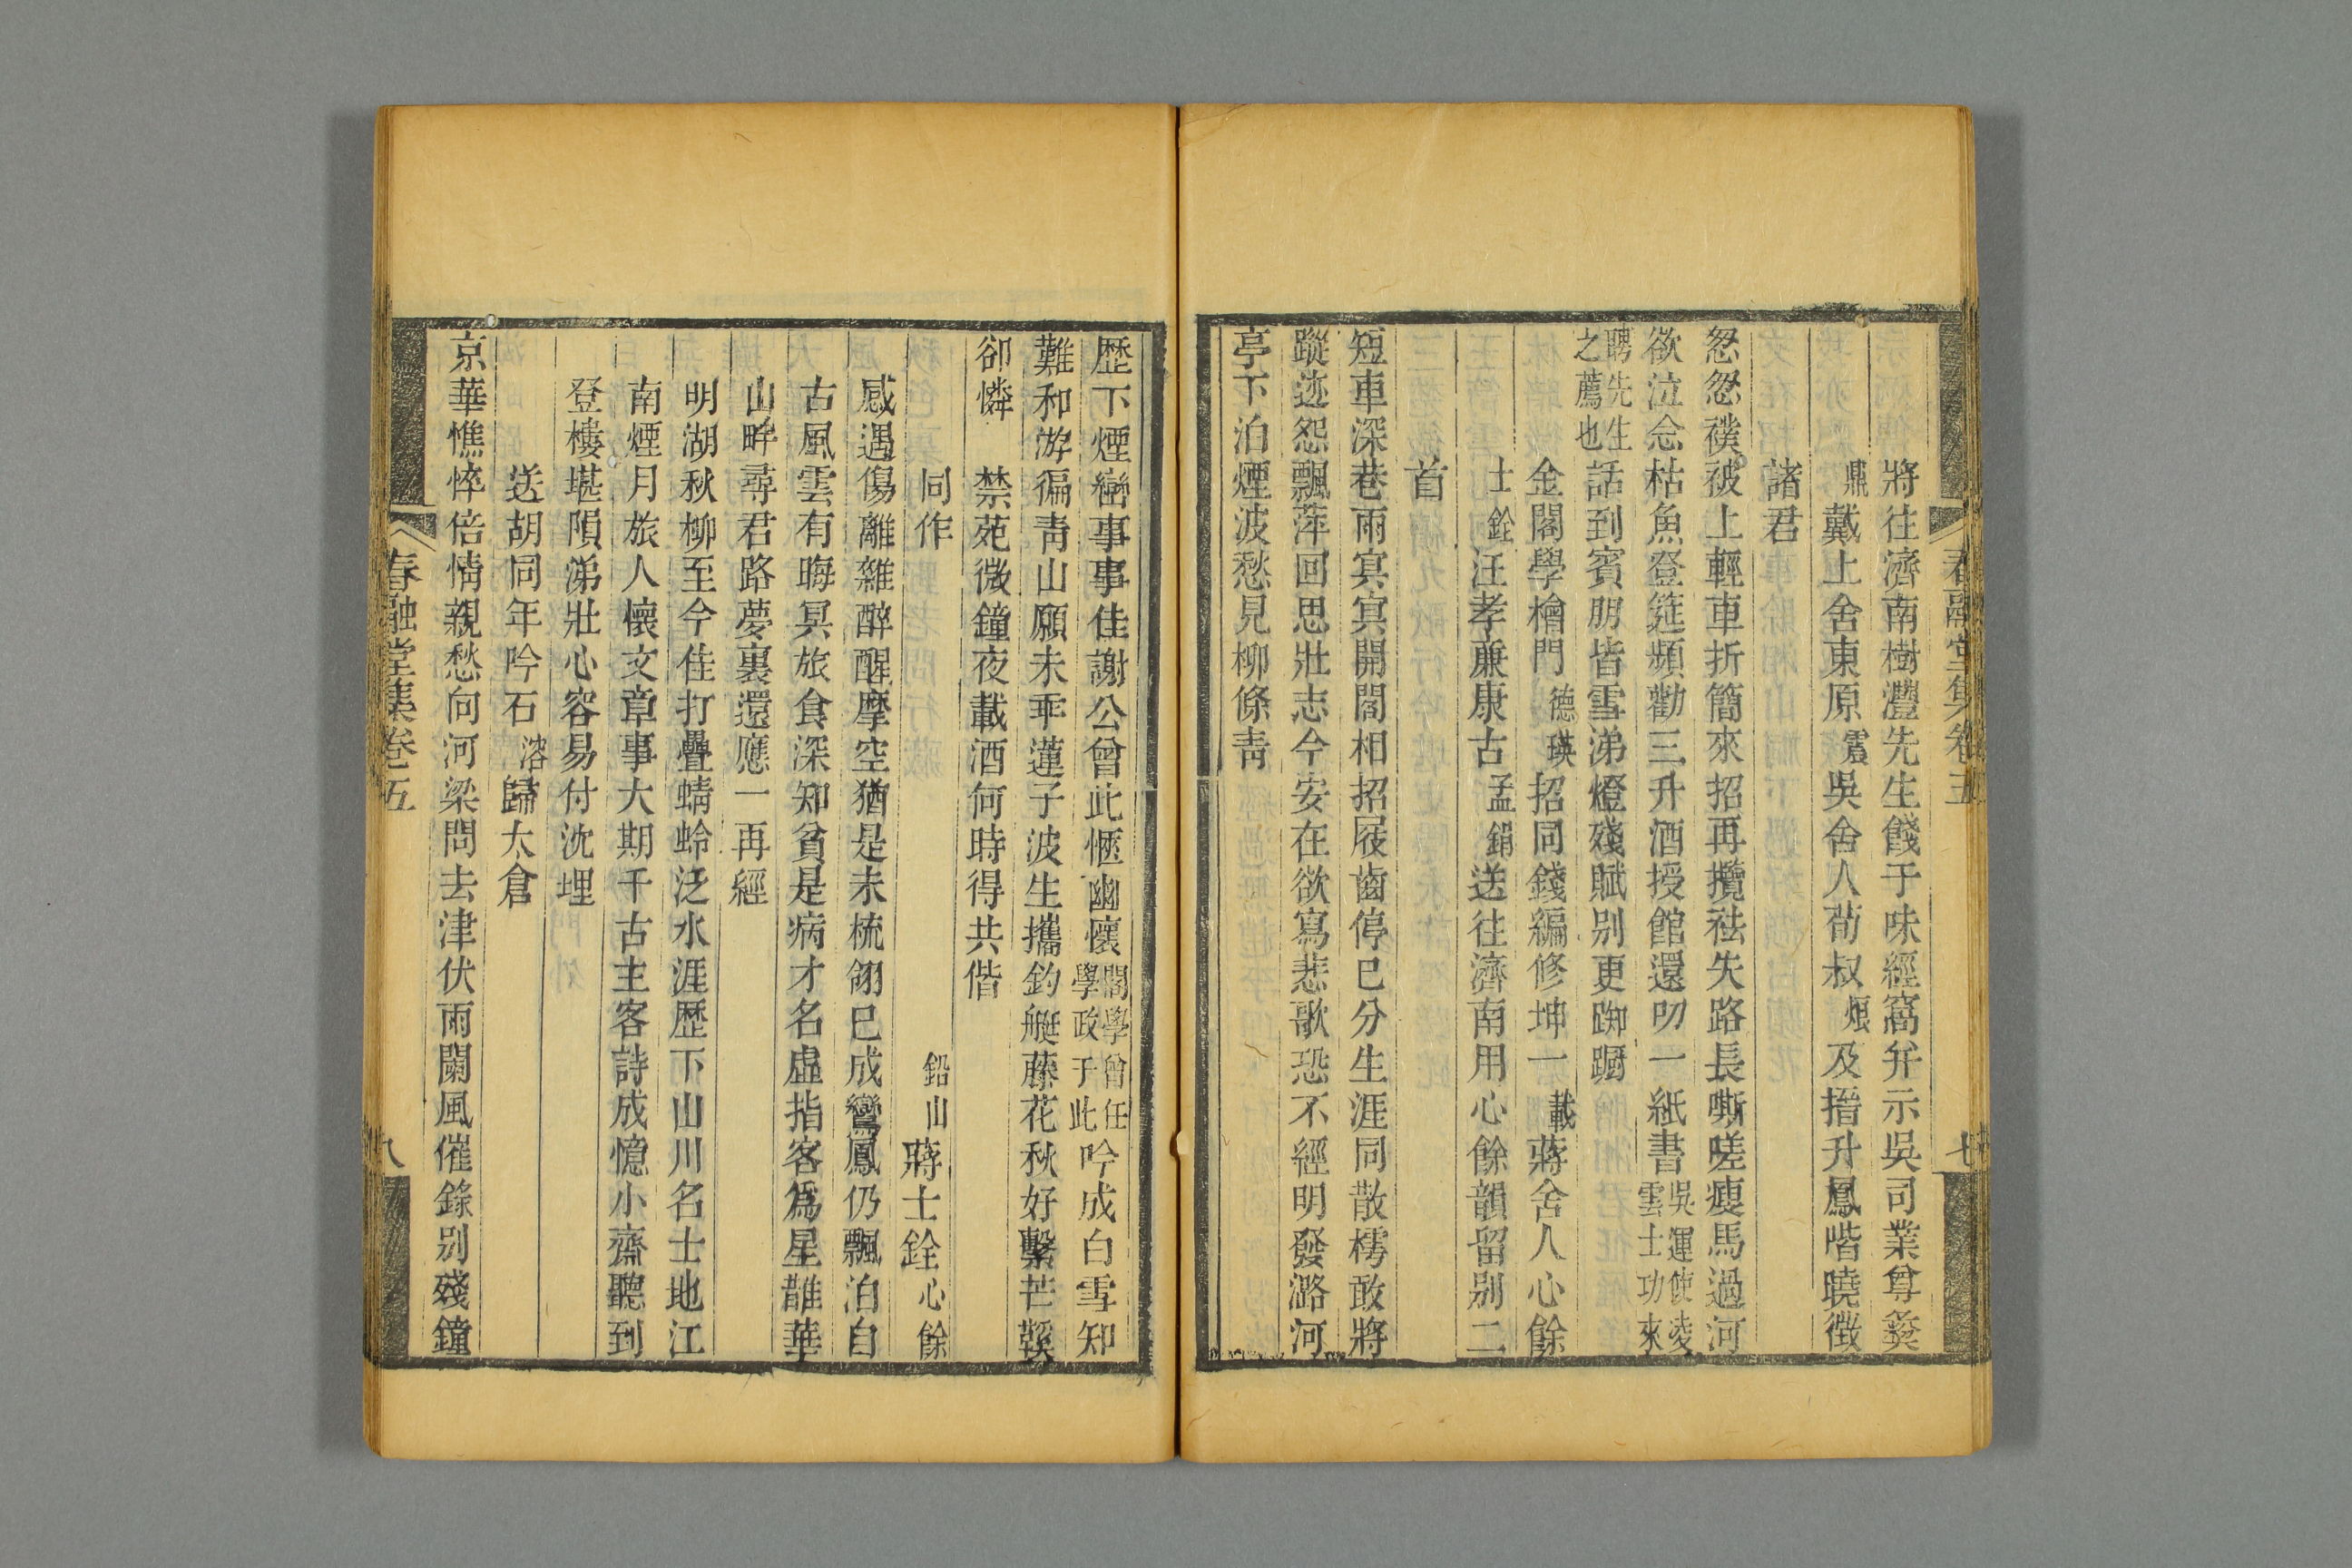 春融堂集卷五
七
將往濟南樹灃先生餞于味經窩并示吳司業尊彛
鼎戴上舍東原震吳舍人荀叔烺及搢升鳳喈曉徵
諸君
怱怱襆被上輕車折簡來招再攬袪失路長嘶嗟瘦馬過河
欲泣念枯魚登筵頻勸三升酒授館還叨一紙書吳運使凌雲士功來
聘先生之薦也話到賓朋皆雪涕燈殘賦別更踟蹰
金閣學檜門德瑛招同錢編修坤一載蔣舍人心餘
士銓汪孝亷康古孟鋗送往濟南用心餘韻留別二
首
短車深巷雨冥冥開閤相招屐齒停已分生涯同散樗敢將
蹤迹怨飄萍回思壯志今安在欲寫悲歌恐不經明發潞河
亭下泊煙波愁見柳條青
歷下煙巒事事佳謝公曾此愜幽懷閣學曾任學政于此吟成白雪知
難和游徧靑山願未乖蓮子波生攜釣艇藤花秋好繫芒鞵
卻憐禁苑微鐘夜載酒何時得共偕
同作鉛山蔣士銓心餘
感遇傷離雜醉醒摩空猶是未梳翎巳成鸞鳳仍飄泊自
古風雲有晦冥旅食深知貧是病才名虛指客爲星誰華
山畔尋君路夢裏還應一再經
明湖秋柳至今佳打疊蜻蛉泛水涯歷下山川名士地江
南煙月旅人懷文章事大期千古主客詩成憶小齋聽到
登樓堪隕涕壯心容易付沈埋
送胡同年吟石溶歸太倉
京華憔悴倍情親愁向河梁問去津伏雨闌風催錄別殘鐘
春融堂集卷五
八